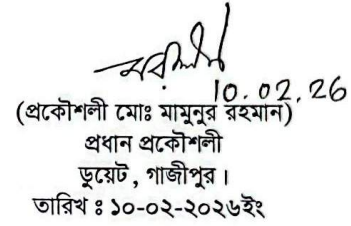 10.02.26
(প্রকৌশলী মোঃ মামুনুর রহমান)
প্রধান প্রকৌশলী
ডুয়েট, গাজীপুর।
তারিখ ঃ ১০-০২-২০২৬ইং